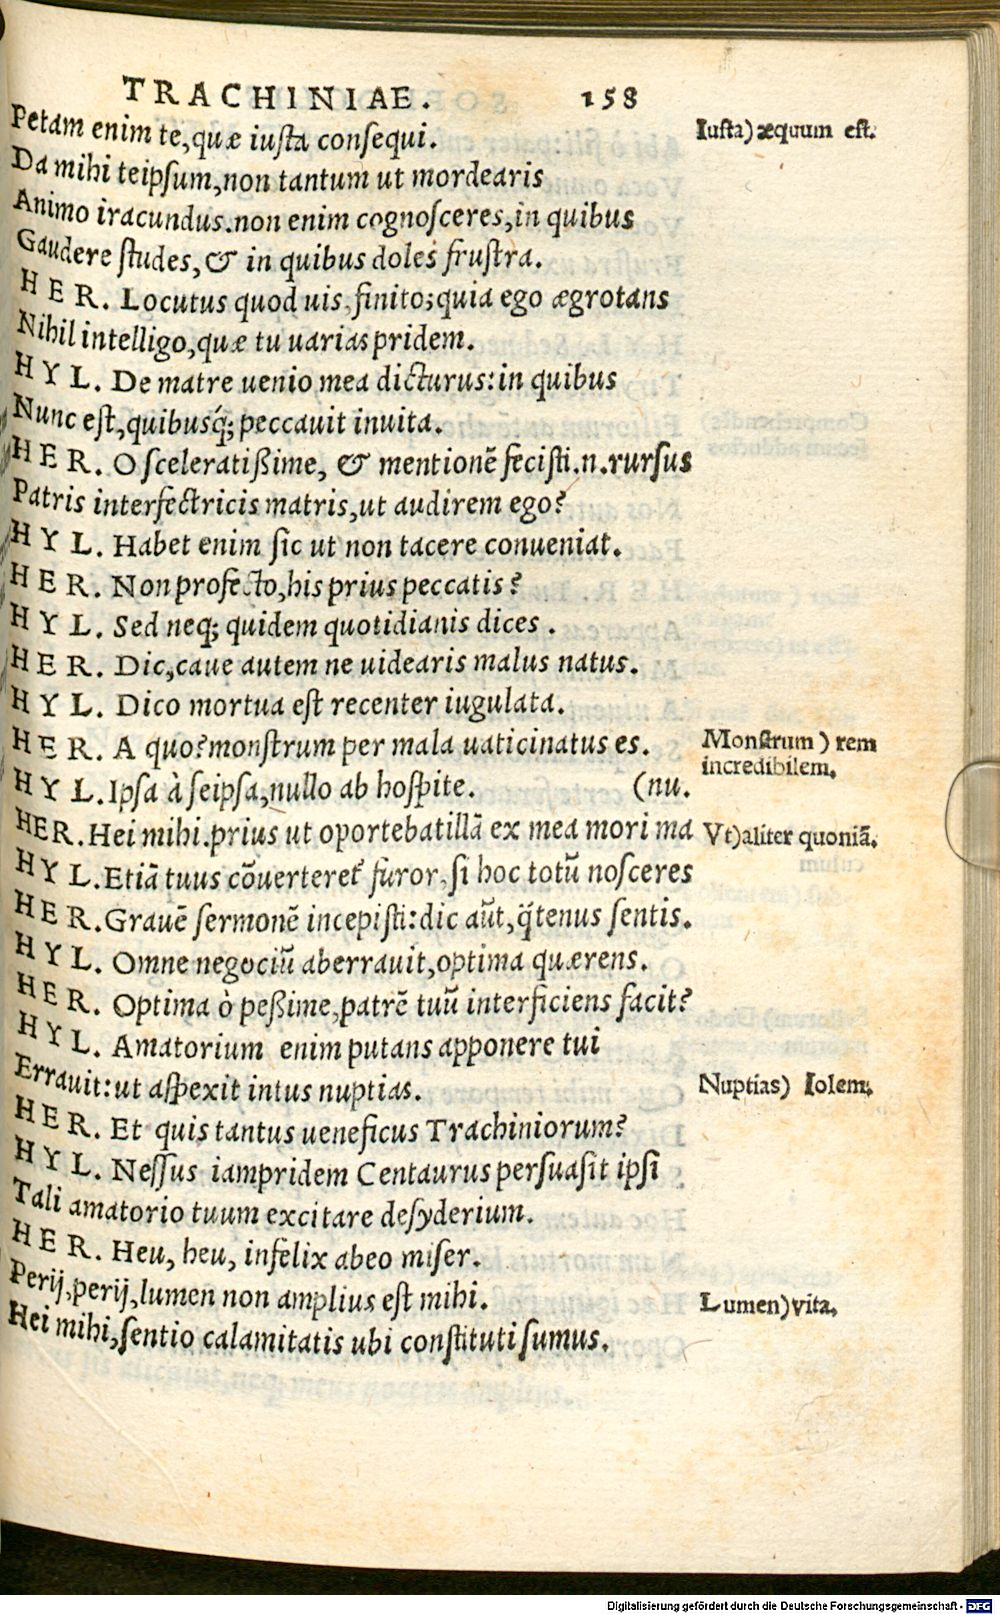 TRACHINIAE. 158
Petam enim te,quæ iusta consequi.
Iusta) æquum est.
Da mihi teipsum,non tantum ut mordearis
Animo iracundus.non enim cognosceres,in quibus
Gaudere studes,& in quibus doles frustra.
HER. Locutus quod uis,finito;quia ego ægrotans
Nihil intelligo,quæ tu uarias pridem.
HYL. De matre uenio mea dicturus:in quibus
Nunc est,quibusq́; peccauit inuita.
HER. O sceleratißime, & mentionē fecisti.n.rursus
Patris interfectricis matris,ut audirem ego?
HYL. Habet enim sic ut non tacere conueniat.
HER. Non profecto,his prius peccatis?
HYL. Sed neq; quidem quotidianis dices.
HER. Dic,caue autem ne uidearis malus natus.
HYL. Dico mortua est recenter iugulata.
HER. A quo?monstrum per mala uaticinatus es.
Monstrum) rem
incredibilem.
HYL. Ipsa à seipsa,nullo ab hospite. (nu.
HER. Hei mihi.prius ut oportebat illā ex mea mori ma
Vt)aliter quoniā.
HYL. Etiā tuus cōuerteret᷑ furor,si hoc totū nosceres
HER. Grauē sermonē incepisti:dic aūt,q̈tenus sentis.
HYL. Omne negociū aberrauit,optima quærens.
HER. Optima ò peßime,patrē tuū interficiens facit?
HYL. Amatorium enim putans apponere tui
Errauit:ut aspexit intus nuptias.
Nuptias) Iolem.
HER. Et quis tantus ueneficus Trachiniorum?
HYL. Nessus iampridem Centaurus persuasit ipsi
Tali amatorio tuum excitare desyderium.
HER. Heu, heu, infelix abeo miser.
Perij,perij,lumen non amplius est mihi.
Lumen)vita.
Hei mihi,sentio calamitatis ubi constituti sumus.
Digitalisierung gefördert durch die Deutsche Forschungsgemeinschaft - DFG